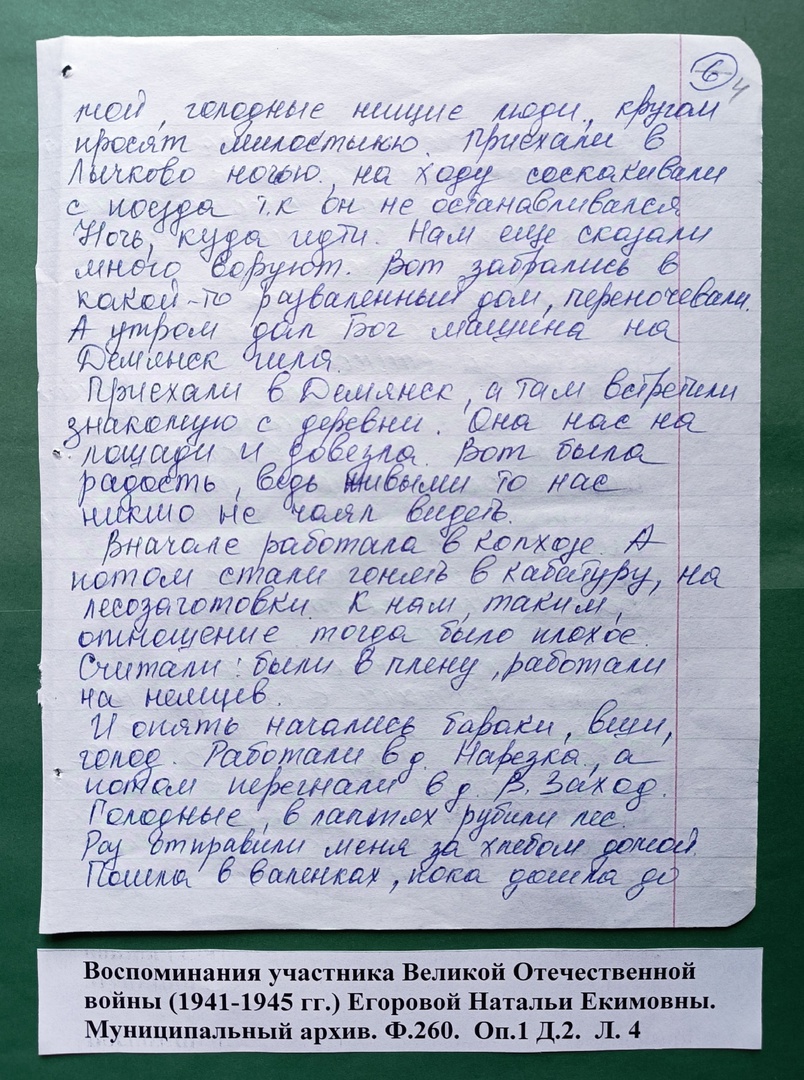 6
4
той, голодные нищие люди, кругом
просят милостыню. Приехали в
Лычково ночью, на ходу соскакивали
с поезда т.к он не останавливался
Ночь, куда идти. Нам еще сказали
много воруют. Вот забрались в
какой-то разваленный дом, переночевали.
А утром дал Бог машина на
Демянск шла.
Приехали в Демянск, а там встретили
знакомую с деревни. Она нас на
лошади и довезла. Вот была
радость, ведь живыми то нас
никто не чаял видеть.
Вначале работала в колхозе. А
потом стали гонять в кабалуру, на
лесозаготовки. К нам, таким,
отношение тогда было плохое.
Считали: были в плену, работали
на немцев.
И опять начались бараки, вши,
голод. Работали в д. Нарезка, а
потом перегнали в д. В. Заход.
Голодные, в лаптях рубили лес.
Раз отправили меня за хлебом домой.
Пошла в валенках, пока дошла до
Воспоминания участника Великой Отечественной
войны (1941-1945 гг.) Егоровой Натальи Екимовны.
Муниципальный архив. Ф.260. Оп.1 Д.2. Л. 4